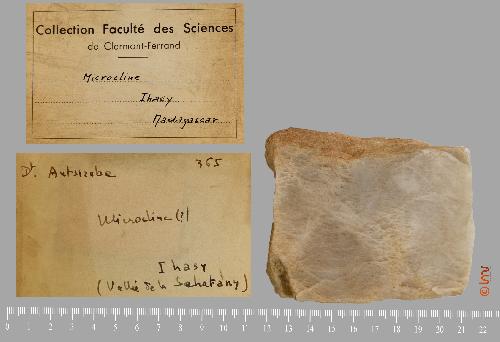 Collection Faculté des Sciences
de Clermont-Ferrand
Microcline
Ihasy
Madagascar
Dt. Antsirabe 365
Microcline (?)
Ihasy
(Vallée de la Sahatany)
0 1 2 3 4 5 6 7 8 9 10 11 12 13 14 15 16 17 18 19 20 21 22